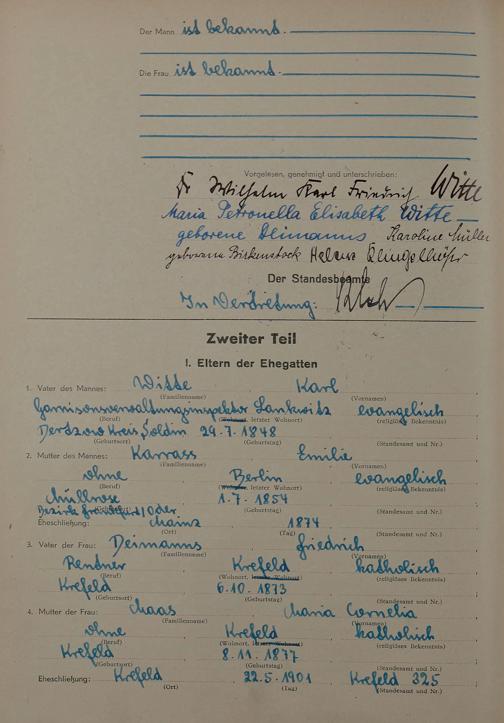 Der Mann ist bekannt.
Die Frau ist bekannt.
Vorgelesen, genehmigt und unterschrieben:
Dr Wilhelm Karl Friedrich Witte
Maria Petronella Elisabeth Witte
geborene Deimanns Karoline Müller
geborene Birkenstock Helene Klingelhöfer
Der Standesbeamte
In Vertretung:
Zweiter Teil
I. Eltern der Ehegatten
1. Vater des Mannes: Witte Karl
(Familienname) (Vornamen)
Garnisonsverwaltungsinspektor Lankwitz evangelisch
(Beruf) (Wohnort, letzter Wohnort) (religiöses Bekenntnis)
Dertzow Kreis Soldin 29.7.1848
(Geburtsort) (Geburtstag) (Standesamt und Nr.)
2. Mutter des Mannes: Karrass Emilie
(Familienname) (Vornamen)
ohne Berlin evangelisch
(Beruf) (Wohnort, letzter Wohnort) (religiöses Bekenntnis)
Müllrose 1.7.1854
Bezirk Frankfurt/Oder
(Geburtstag) (Standesamt und Nr.)
Eheschließung: Mainz 1874
(Ort) (Tag) (Standesamt und Nr.)
3. Vater der Frau: Deimanns Friedrich
(Familienname) (Vornamen)
Rentner Krefeld katholisch
(Beruf) (Wohnort, letzter Wohnort) (religiöses Bekenntnis)
Krefeld 6.10.1873
(Geburtsort) (Geburtstag) (Standesamt und Nr.)
4. Mutter der Frau: Maas Maria Cornelia
(Familienname) (Vornamen)
ohne Krefeld katholisch
(Beruf) (Wohnort, letzter Wohnort) (religiöses Bekenntnis)
Krefeld 8.11.1877
(Geburtsort) (Geburtstag) (Standesamt und Nr.)
Eheschließung: Krefeld 22.5.1901 Krefeld 325
(Ort) (Tag) (Standesamt und Nr.)